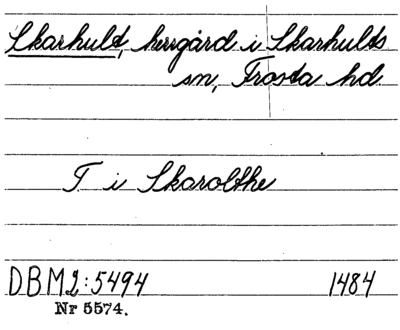 Skarhult, herrgård i Skarhults
sn, Frosta hd.
T i Skarolthe
DBM2:5494 1484
Nr 5574.